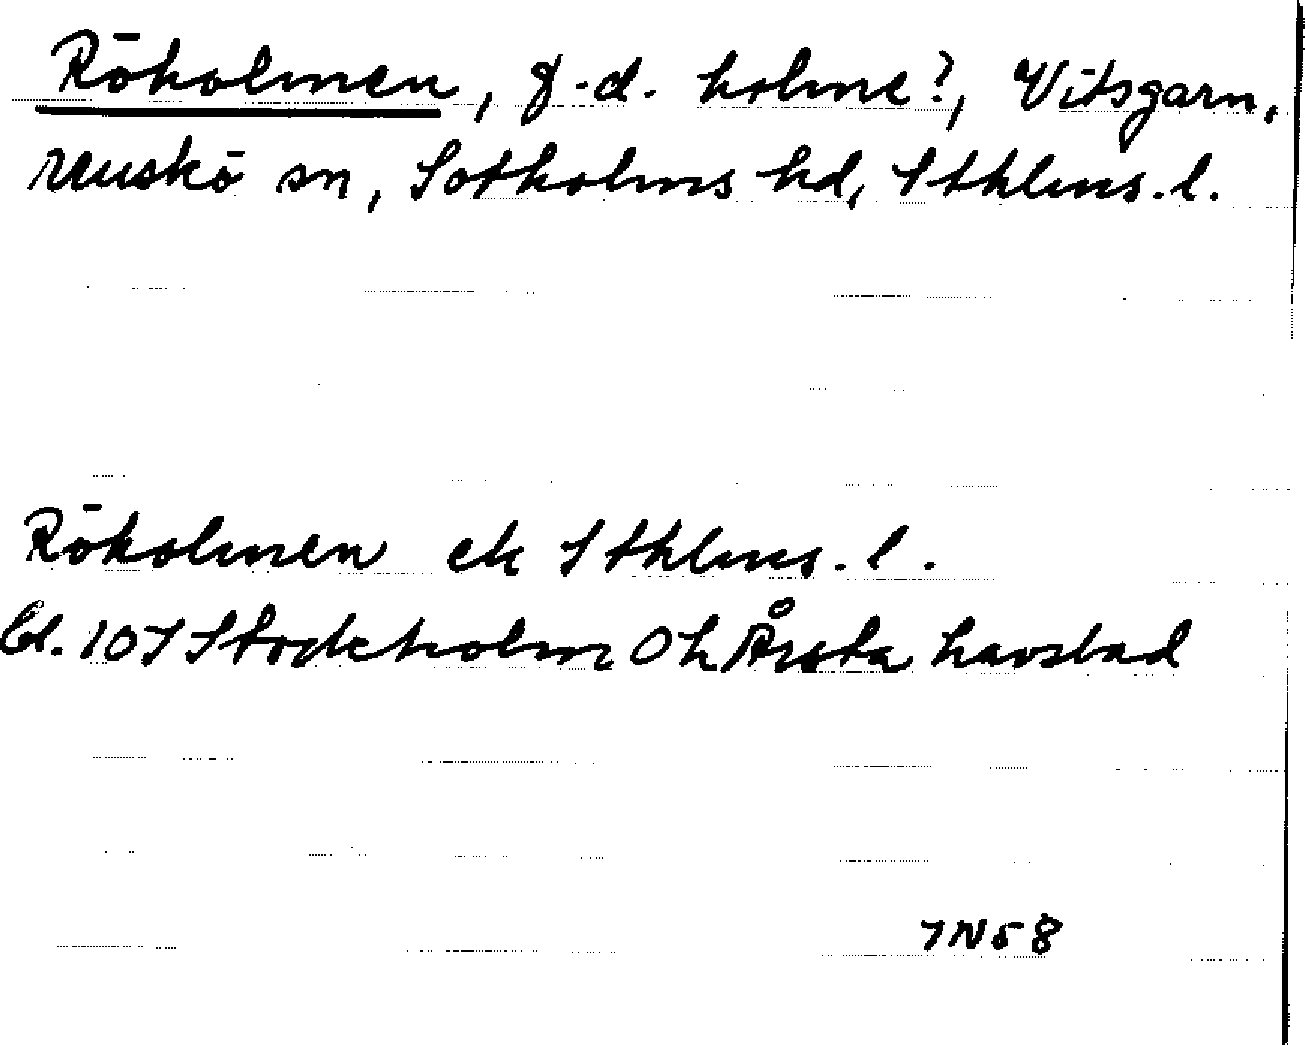 Röholmen, f.d. holme?, Vitsgarn,
Muskö sn, Sotholms hd, Sthlms. l.
Röholmen ek Sthlms. l.
bl. 107 Stockholm Oh Årsta havsbad
7N58